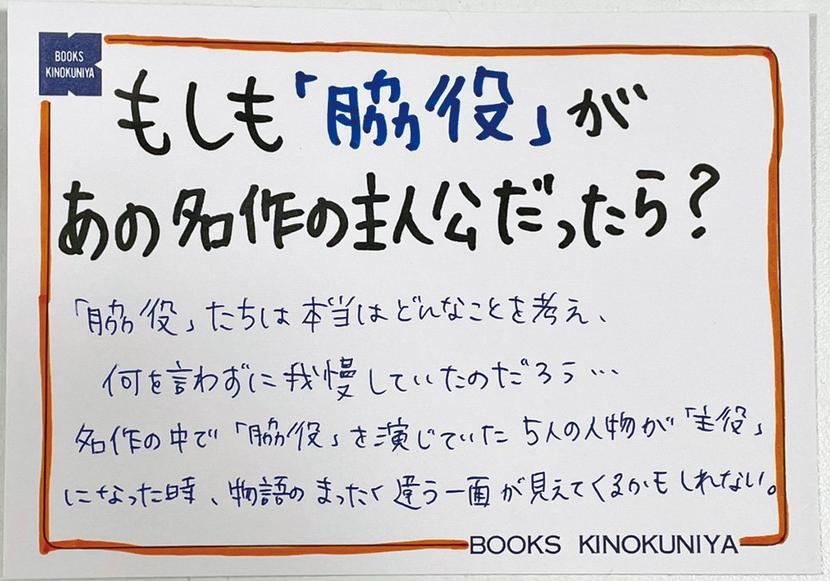 BOOKS
KINOKUNIYA
もしも「脇役」が
あの名作の主人公だったら?
「脇役」たちは本当はどんなことを考え、
何を言わずに我慢していたのだろう…
名作の中で「脇役」を演じていた5人の人物が「主役」
になった時、物語のまったく違う一面が見えてくるかもしれない。
BOOKS KINOKUNIYA